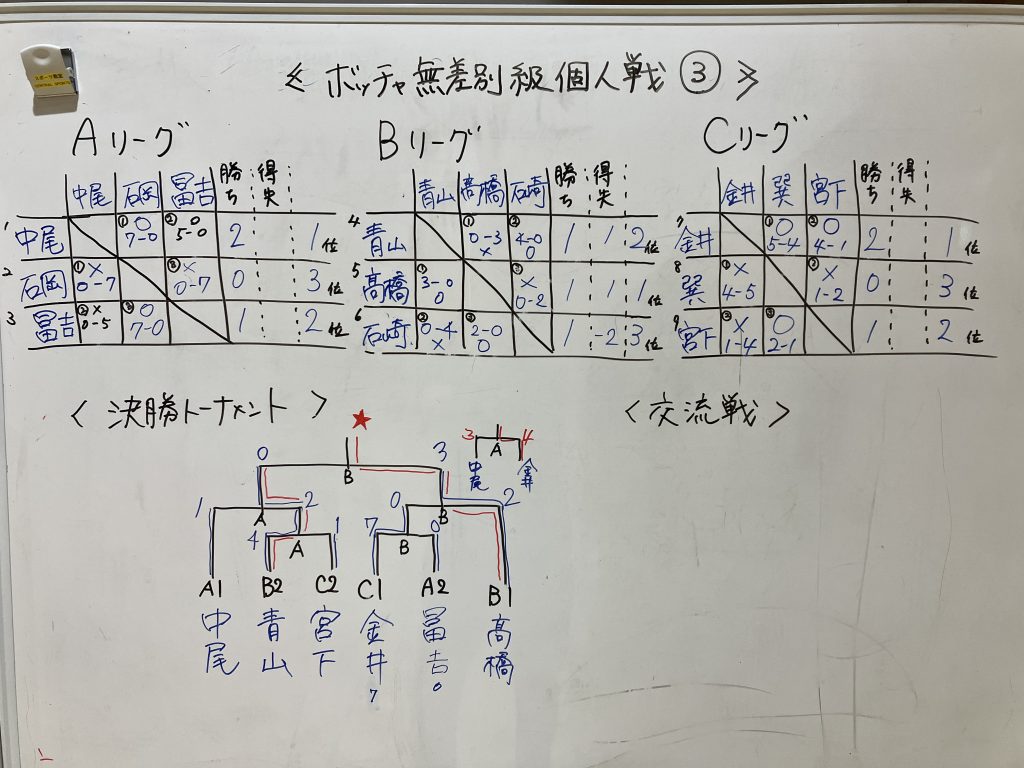 ≪ボッチャ無差別級個人戦③≫
Aリーグ
中尾 石岡 冨吉 勝ち 得失
1 中尾 ①○ 7-0 ②○ 5-0 2 1位
2 石岡 ①× 0-7 ③× 0-7 0 3位
3 冨吉 ②× 0-5 ③○ 7-0 1 2位
Bリーグ
青山 髙橋 石崎 勝ち 得失
4 青山 ①0-3 × ②4-0 ○ 1 1 2位
5 髙橋 ①3-0 ○ ③× 0-2 1 1 1位
6 石崎 ②0-4 × ③2-0 ○ 1 -2 3位
Cリーグ
金井 巽 宮下 勝ち 得失
7 金井 ①○ 5-4 ②○ 4-1 2 1位
8 巽 ①× 4-5 ③× 1-2 0 3位
9 宮下 ②× 1-4 ③○ 2-1 1 2位
〈決勝トーナメント〉
★
0 B 3
1 A 2 0 B 2
4 A 1 7 B 0
A1 B2 C2 C1 A2 B1
中尾 青山 宮下 金井 冨吉 髙橋
7 0
3 A 4
中尾 金井
〈交流戦〉